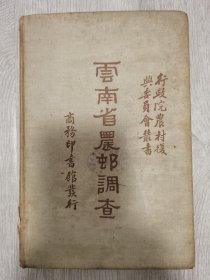 行政院農村復
興委員會叢書
雲南省農邨調查
商務印書館發行